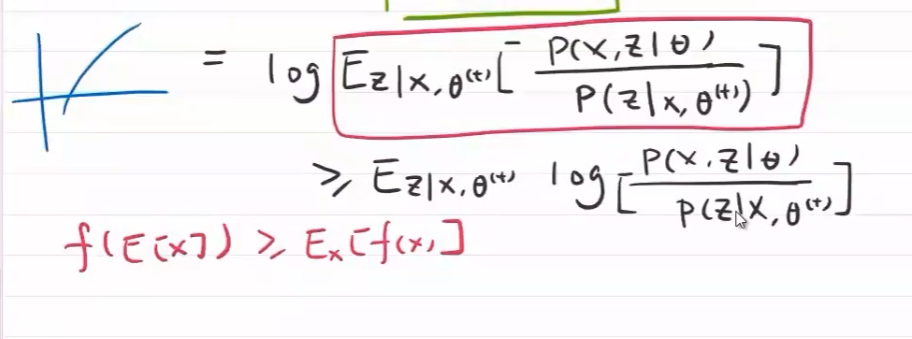 = log E_{Z|X,θ^{(t)}} [ P(X,Z|θ) / P(Z|X,θ^{(t)}) ]
≥ E_{Z|X,θ^{(t)}} log [ P(X,Z|θ) / P(Z|X,θ^{(t)}) ]
f(E[x]) ≥ E_x[f(x)]